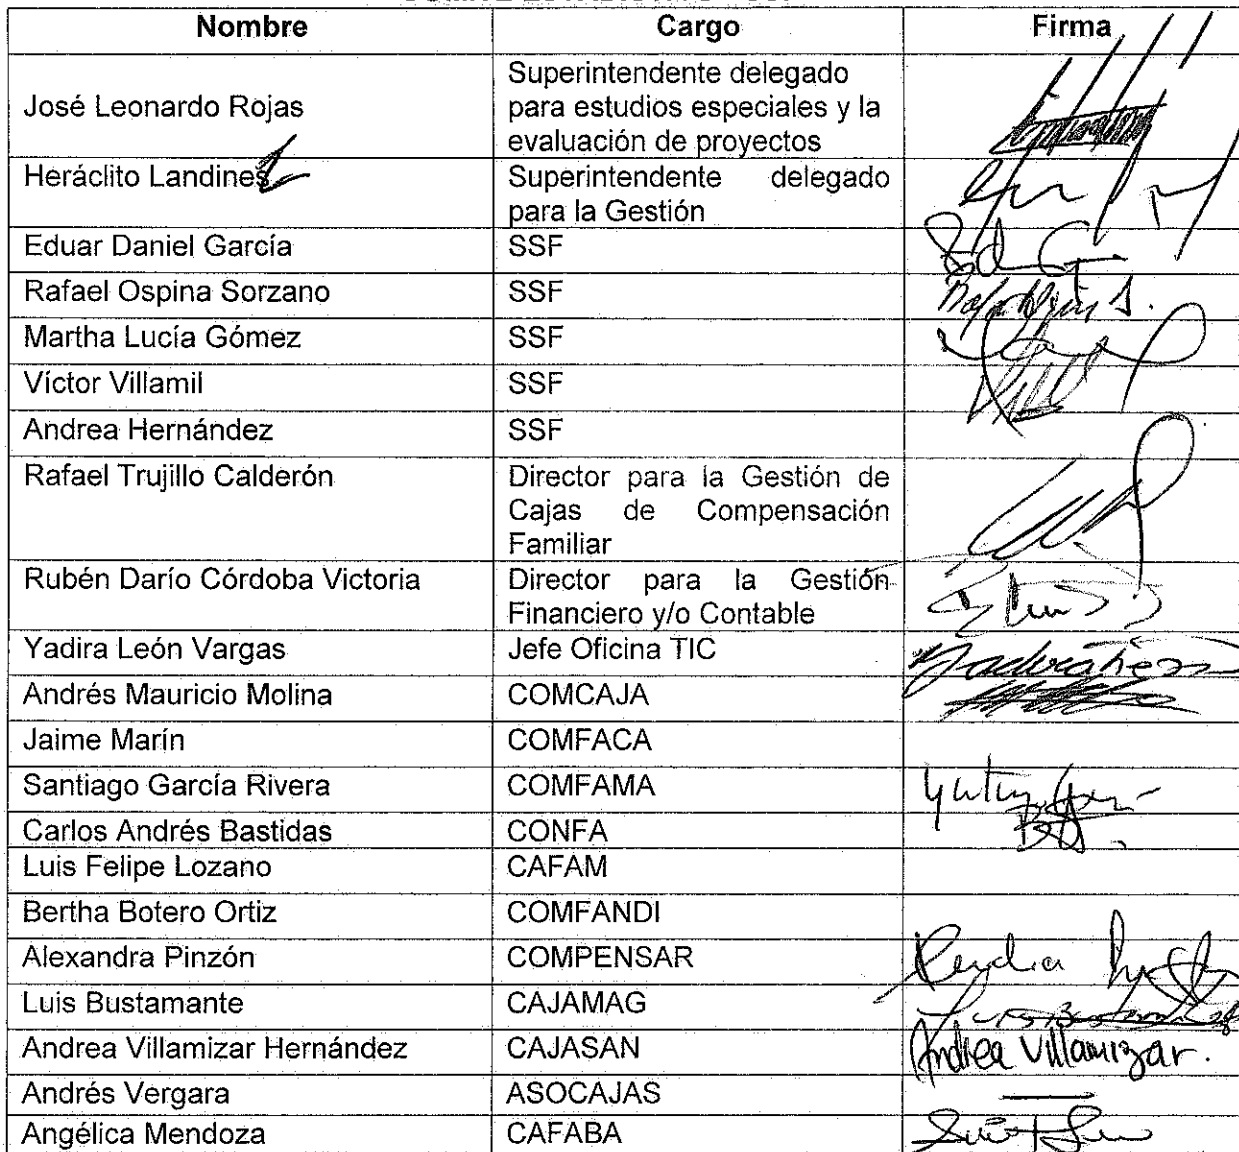 Nombre Cargo Firma
José Leonardo Rojas Superintendente delegado
para estudios especiales y la
evaluación de proyectos
Heráclito Landines Superintendente delegado
para la Gestión
Eduar Daniel García SSF
Rafael Ospina Sorzano SSF
Martha Lucía Gómez SSF
Víctor Villamil SSF
Andrea Hernández SSF
Rafael Trujillo Calderón Director para la Gestión de
Cajas de Compensación
Familiar
Rubén Darío Córdoba Victoria Director para la Gestión
Financiero y/o Contable
Yadira León Vargas Jefe Oficina TIC
Andrés Mauricio Molina COMCAJA
Jaime Marín COMFACA
Santiago García Rivera COMFAMA
Carlos Andrés Bastidas CONFA
Luis Felipe Lozano CAFAM
Bertha Botero Ortiz COMFANDI
Alexandra Pinzón COMPENSAR
Luis Bustamante CAJAMAG
Andrea Villamizar Hernández CAJASAN Andrea Villamizar.
Andrés Vergara ASOCAJAS
Angélica Mendoza CAFABA